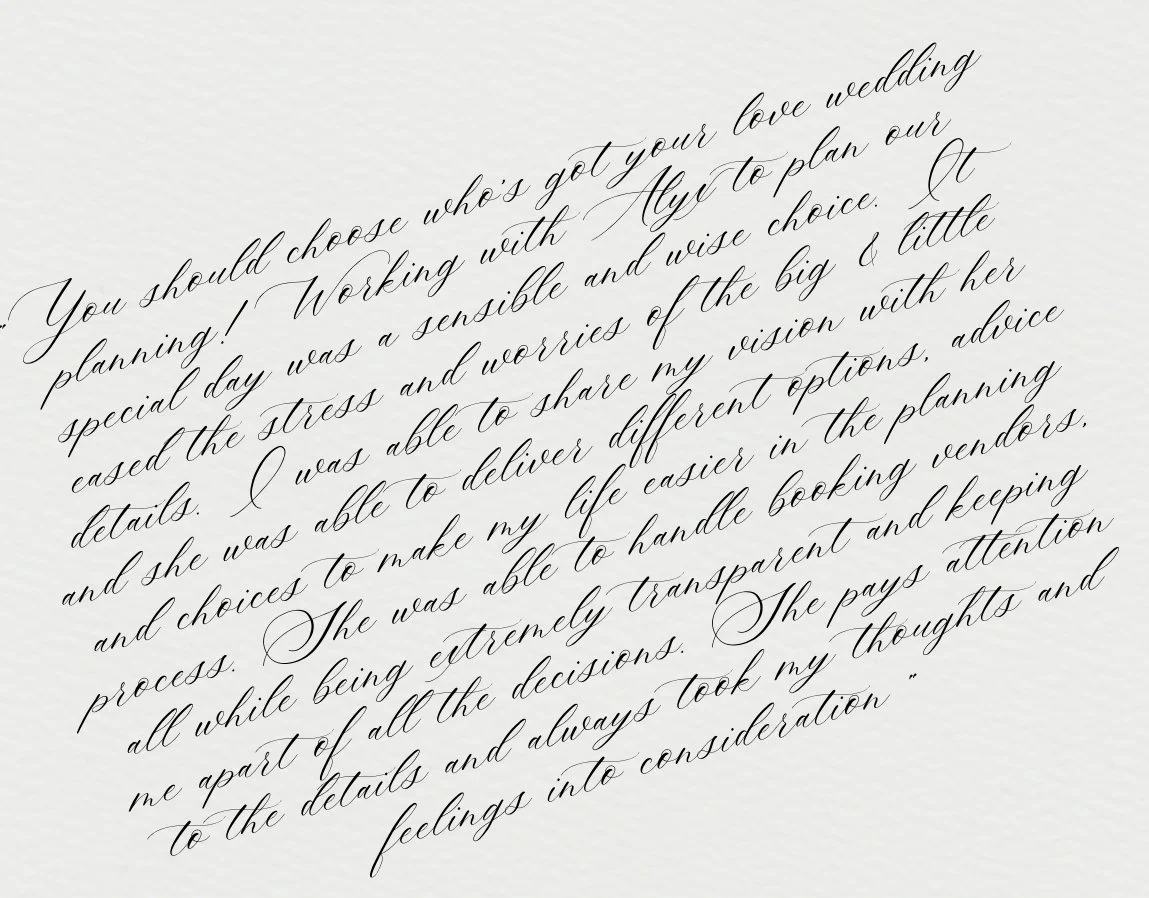 "You should choose who's got your love wedding
planning! Working with Alyx to plan our
special day was a sensible and wise choice. It
eased the stress and worries of the big & little
details. I was able to share my vision with her
and she was able to deliver different options, advice
and choices to make my life easier in the planning
process. She was able to handle booking vendors,
all while being extremely transparent and keeping
me apart of all the decisions. She pays attention
to the details and always took my thoughts and
feelings into consideration"